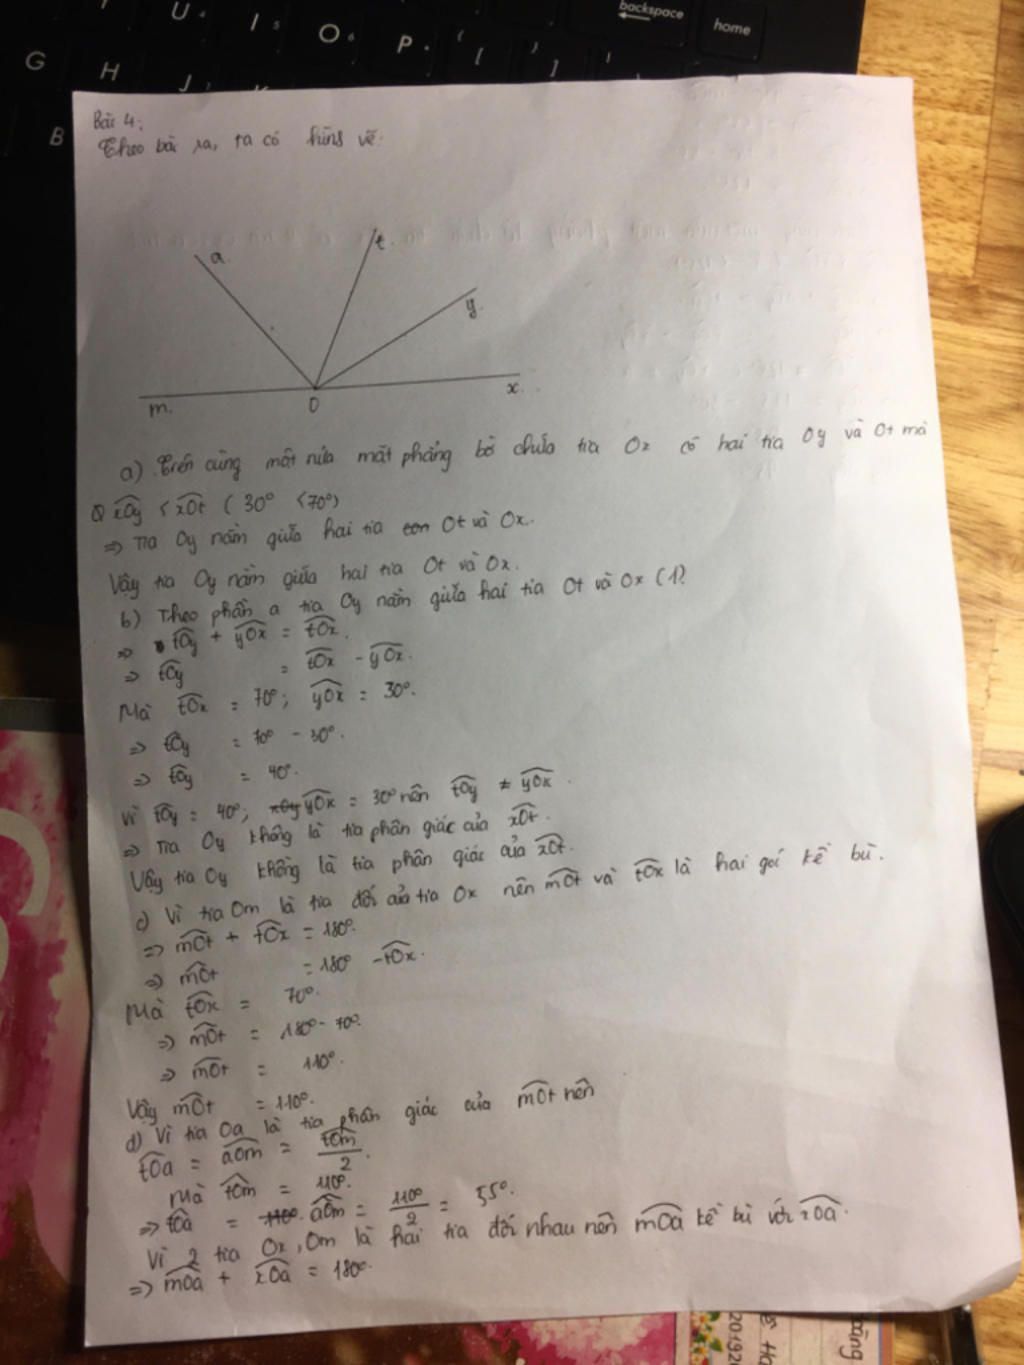 U
I
O
P
[
]
backspace
home
G
H
J
B
Bài 4:
Theo bài ra, ta có hình vẽ:
a
t
y
m
O
x
a) Trên cùng một nửa mặt phẳng bờ chứa tia Ox có hai tia Oy và Ot mà
xOy < xOt (30° < 70°)
=> Tia Oy nằm giữa hai tia Ot và Ox.
Vậy tia Oy nằm giữa hai tia Ot và Ox.
b) Theo phần a tia Oy nằm giữa hai tia Ot và Ox (1)
=> tOy + yOx = tOx.
=> tOy = tOx - yOx.
Mà tOx = 70°; yOx = 30°.
=> tOy = 70° - 30°.
=> tOy = 40°.
Vì tOy = 40°; yOx = 30° nên tOy ≠ yOx.
=> Tia Oy không là tia phân giác của xOt.
Vậy tia Oy không là tia phân giác của xOt.
c) Vì tia Om là tia đối của tia Ox nên mOt và tOx là hai goí kề bù.
=> mOt + tOx = 180°.
=> mOt = 180° - tOx.
Mà tOx = 70°.
=> mOt = 180° - 70°.
=> mOt = 110°.
Vậy mOt = 110°.
d) Vì tia Oa là tia phân giác của mOt nên
tOa = aOm = tOm/2.
Mà tOm = 110°.
=> tOa = aOm = 110°/2 = 55°.
Vì 2 tia Ox, Om là hai tia đối nhau nên mOa kề bù với xOa.
=> mOa + xOa = 180°.